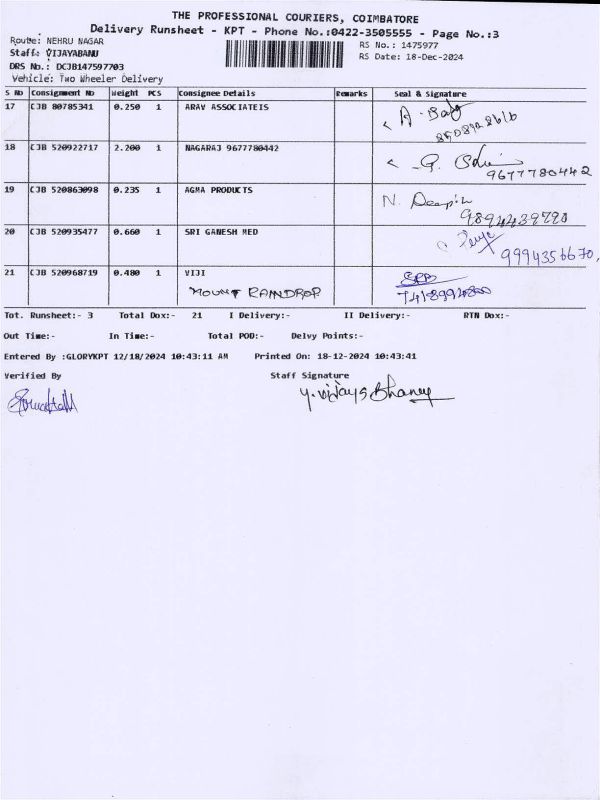 THE PROFESSIONAL COURIERS, COIMBATORE
Delivery Runsheet - KPT - Phone No.:0422-3505555 - Page No.:3
Route: NEHRU NAGAR
RS No.: 1475977
Staff: VIJAYABANU
RS Date: 18-Dec-2024
DRS No.: DCJB147597703
Vehicle: Two Wheeler Delivery
S No Consignment No Weight PCS Consignee Details Remarks Seal & Signature
17 CJB 80785341 0.250 1 ARAV ASSOCIATEIS
18 CJB 520922717 2.200 1 NAGARAJ 9677780442
9677780442
19 CJB 520863098 0.235 1 AGMA PRODUCTS N.
9894439790
20 CJB 520935477 0.660 1 SRI GANESH MED
9994356670,
21 CJB 520968719 0.480 1 VIJI
MOUNT RAINDROP
Tot. Runsheet:- 3 Total Dox:- 21 I Delivery:- II Delivery:- RTN Dox:-
Out Time:- In Time:- Total POD:- Delvy Points:-
Entered By :GLORYKPT 12/18/2024 10:43:11 AM Printed On: 18-12-2024 10:43:41
Verified By Staff Signature